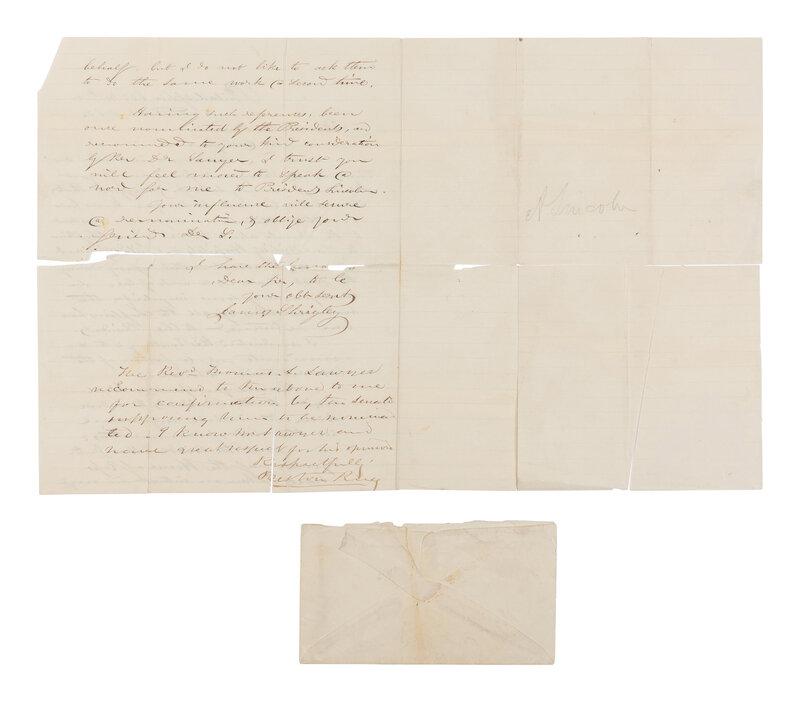 behalf, but I do not like to ask them
to do the same work a second time.
Having such references, been
once nominated by the Presidents, and
recommended to your kind consideration
by Rev Dr Sawyer, I trust you
will feel moved to speak a
word for me to President Lincoln.
Your influence will secure
a renomination, & oblige your
friend Dr S.
I have the honor
Dear Sir, to be
your obt Servt
James Shrigley
The Revd Thomas J. Sawyer
recommend to the above to me
for confirmation by the Senate
supposing him to be nomina
ted. I know Mr Sawyer and
have great respect for his opinion
Respectfully
Preston King
A Lincoln